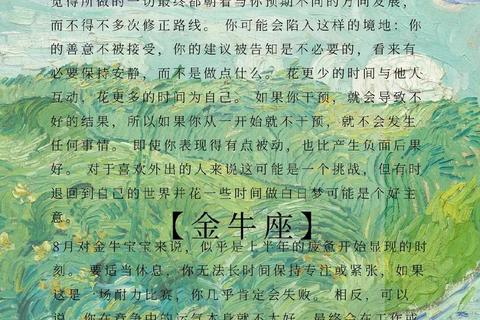 觉得所做的一切最终都朝着与你预期不同的方向发展，
而不得不多次修正路线。 你可能会陷入这样的境地：你
的善意不被接受，你的建议被告知是不必要的，看来有
必要保持安静，而不是做点什么。 花更少的时间与他人
互动，花更多的时间为自己。 如果你干预，就会导致不
好的结果，所以如果你从一开始就不干预，就不会发生
任何事情。 即使你表现得有点被动，也比产生负面后果
好。 对于喜欢外出的人来说这可能是一个挑战，但有时
退回到自己的世界并花一些时间做白日梦可能是个好主
意。
【金牛座】
8月对金牛宝宝来说，似乎是上半年的疲惫开始显现的时
刻。 要适当休息，你无法长时间保持专注或紧张，如果
这是一场耐力比赛，你几乎肯定会失败。 相反，可以
说，你在竞争中的运气本身就不大好，最终会在工作或